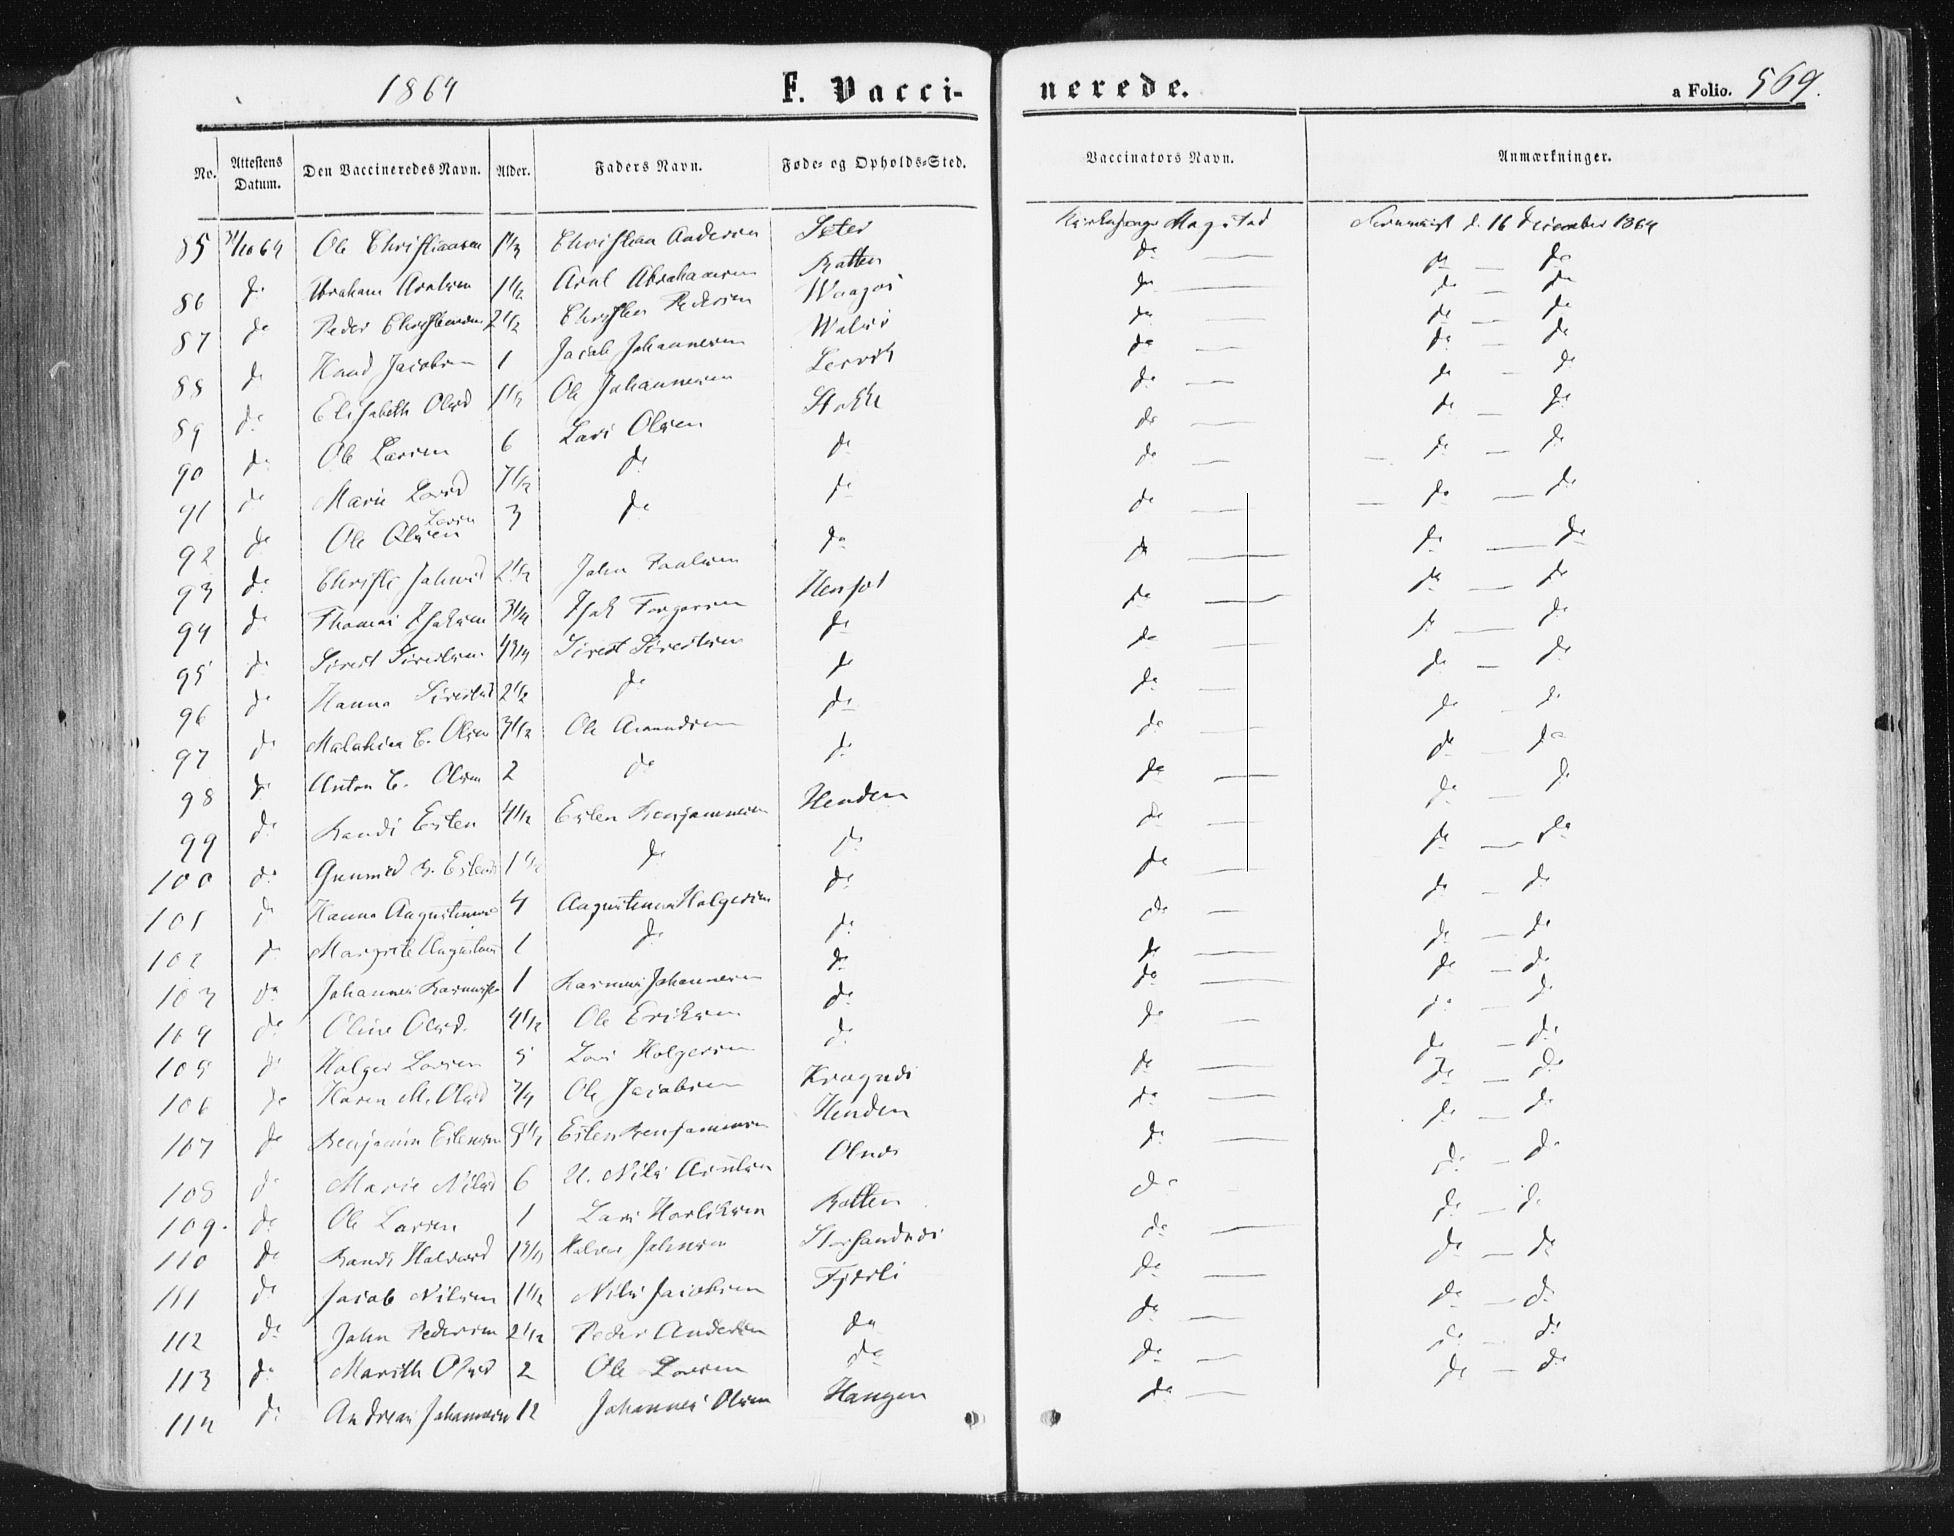 1864 F. Vacci- nerede. a Folio. 569.
No. Attestens Datum. Den Vaccineredes Navn. Alder. Faders Navn. Føde- og Opholds-Sted. Vaccinators Navn. Anmærkninger.
85 31/10 64 Ole Christiansen 1 1/3 Christian Andersen Seter Kirkesanger Magstad d. 16 December 1864
86 do Abraham Arntsen 1 1/2 Arnt Abrahamsen Ratten do — do — do
87 do Peder Christensen 2 1/2 Christen Pedersen do — do — do
88 do Knud Jacobsen 1 Jacob Johannesen do — do — do
89 do Elisabeth Olsd 1 1/3 Ole Johannesen Lervik do — do — do
90 do Ole Larsen 6 Lars Olsen Stokke do — do — do
91 do Marie Larsd 7 1/2 do do do — do — do
92 do Ole Olsen Larsen 3 do do do — do — do
93 do Johnsd 2 1/2 John Paulsen do do — do — do
94 do Thomas Isaksen 3 1/4 Isak do — do — do
95 do Sivert Sivertsen 4 3/4 Sivert Sivertsen do do — do — do
96 do Hanna Sivertsd 2 1/2 do do do — do — do
97 do C. Olsen 3 1/2 Ole Amundsen do do — do — do
98 do Anton C. Olsen 2 do do do — do — do
99 do Randi Esten 4 1/2 Esten Benjaminsen Henden do — do — do
100 do B. Estens 1 1/2 do do do — do — do
101 do Hanna Augustinus 4 Augustinus Holgersen do do — do — do
102 do Margrete Augustinus 1 do do do — do — do
103 do Johannes Rasmussen 1 Rasmus Johannesen do do — do — do
104 do Oline Olsd. 4 1/2 Ole Eriksen do do — do — do
105 do Holger Larsen 5 Lars Holgersen do do — do — do
106 do Karen M. Olsd 3/4 Ole Jacobsen do — do — do
107 do Benjamin Estensen 8 1/2 Esten Benjaminsen Henden do — do — do
108 do Marie Nilsd 6 U. Nils Arntsen do — do — do
109. do Ole Larsen 1 Lars Ratten do — do — do
110 do Randi Halvord 1 3/4 Halvor Johnsen do — do — do
111 do Jacob Nilsen 1 1/2 Nils Jacobsen Fjerli do — do — do
112 do John Pedersen 2 1/2 Peder Andersen do do — do — do
113 do Marith Olsd 2 Ole Larsen do do — do — do
114 do Andreas Johannesen 12 Johannes Olsen Haugen do —